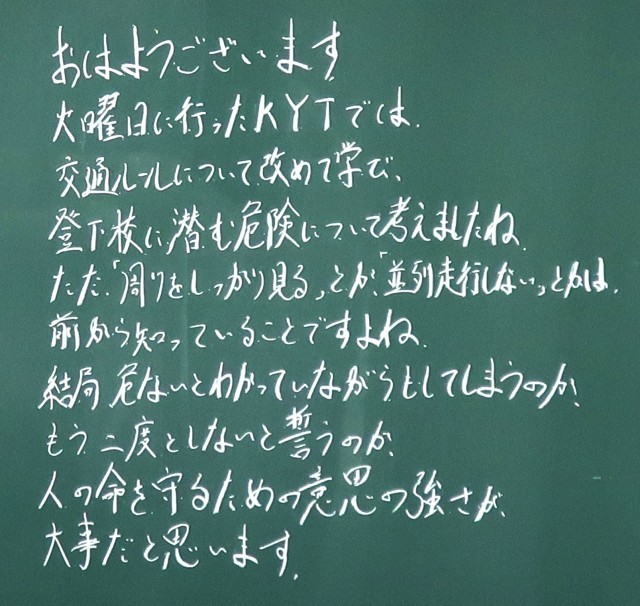 おはようございます
火曜日に行ったKYTでは、
交通ルールについて改めて学び、
登下校に潜む危険について考えましたね。
ただ、「周りをしっかり見る」とか「並列走行しない」とかは、
前から知っていることですよね。
結局危ないとわかっていながらもしてしまうのか、
もう二度としないと誓うのか、
人の命を守るための意思の強さが、
大事だと思います。